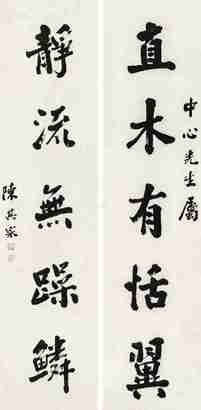 中心先生屬
直木有恬翼
靜流無躁鱗
陳其家